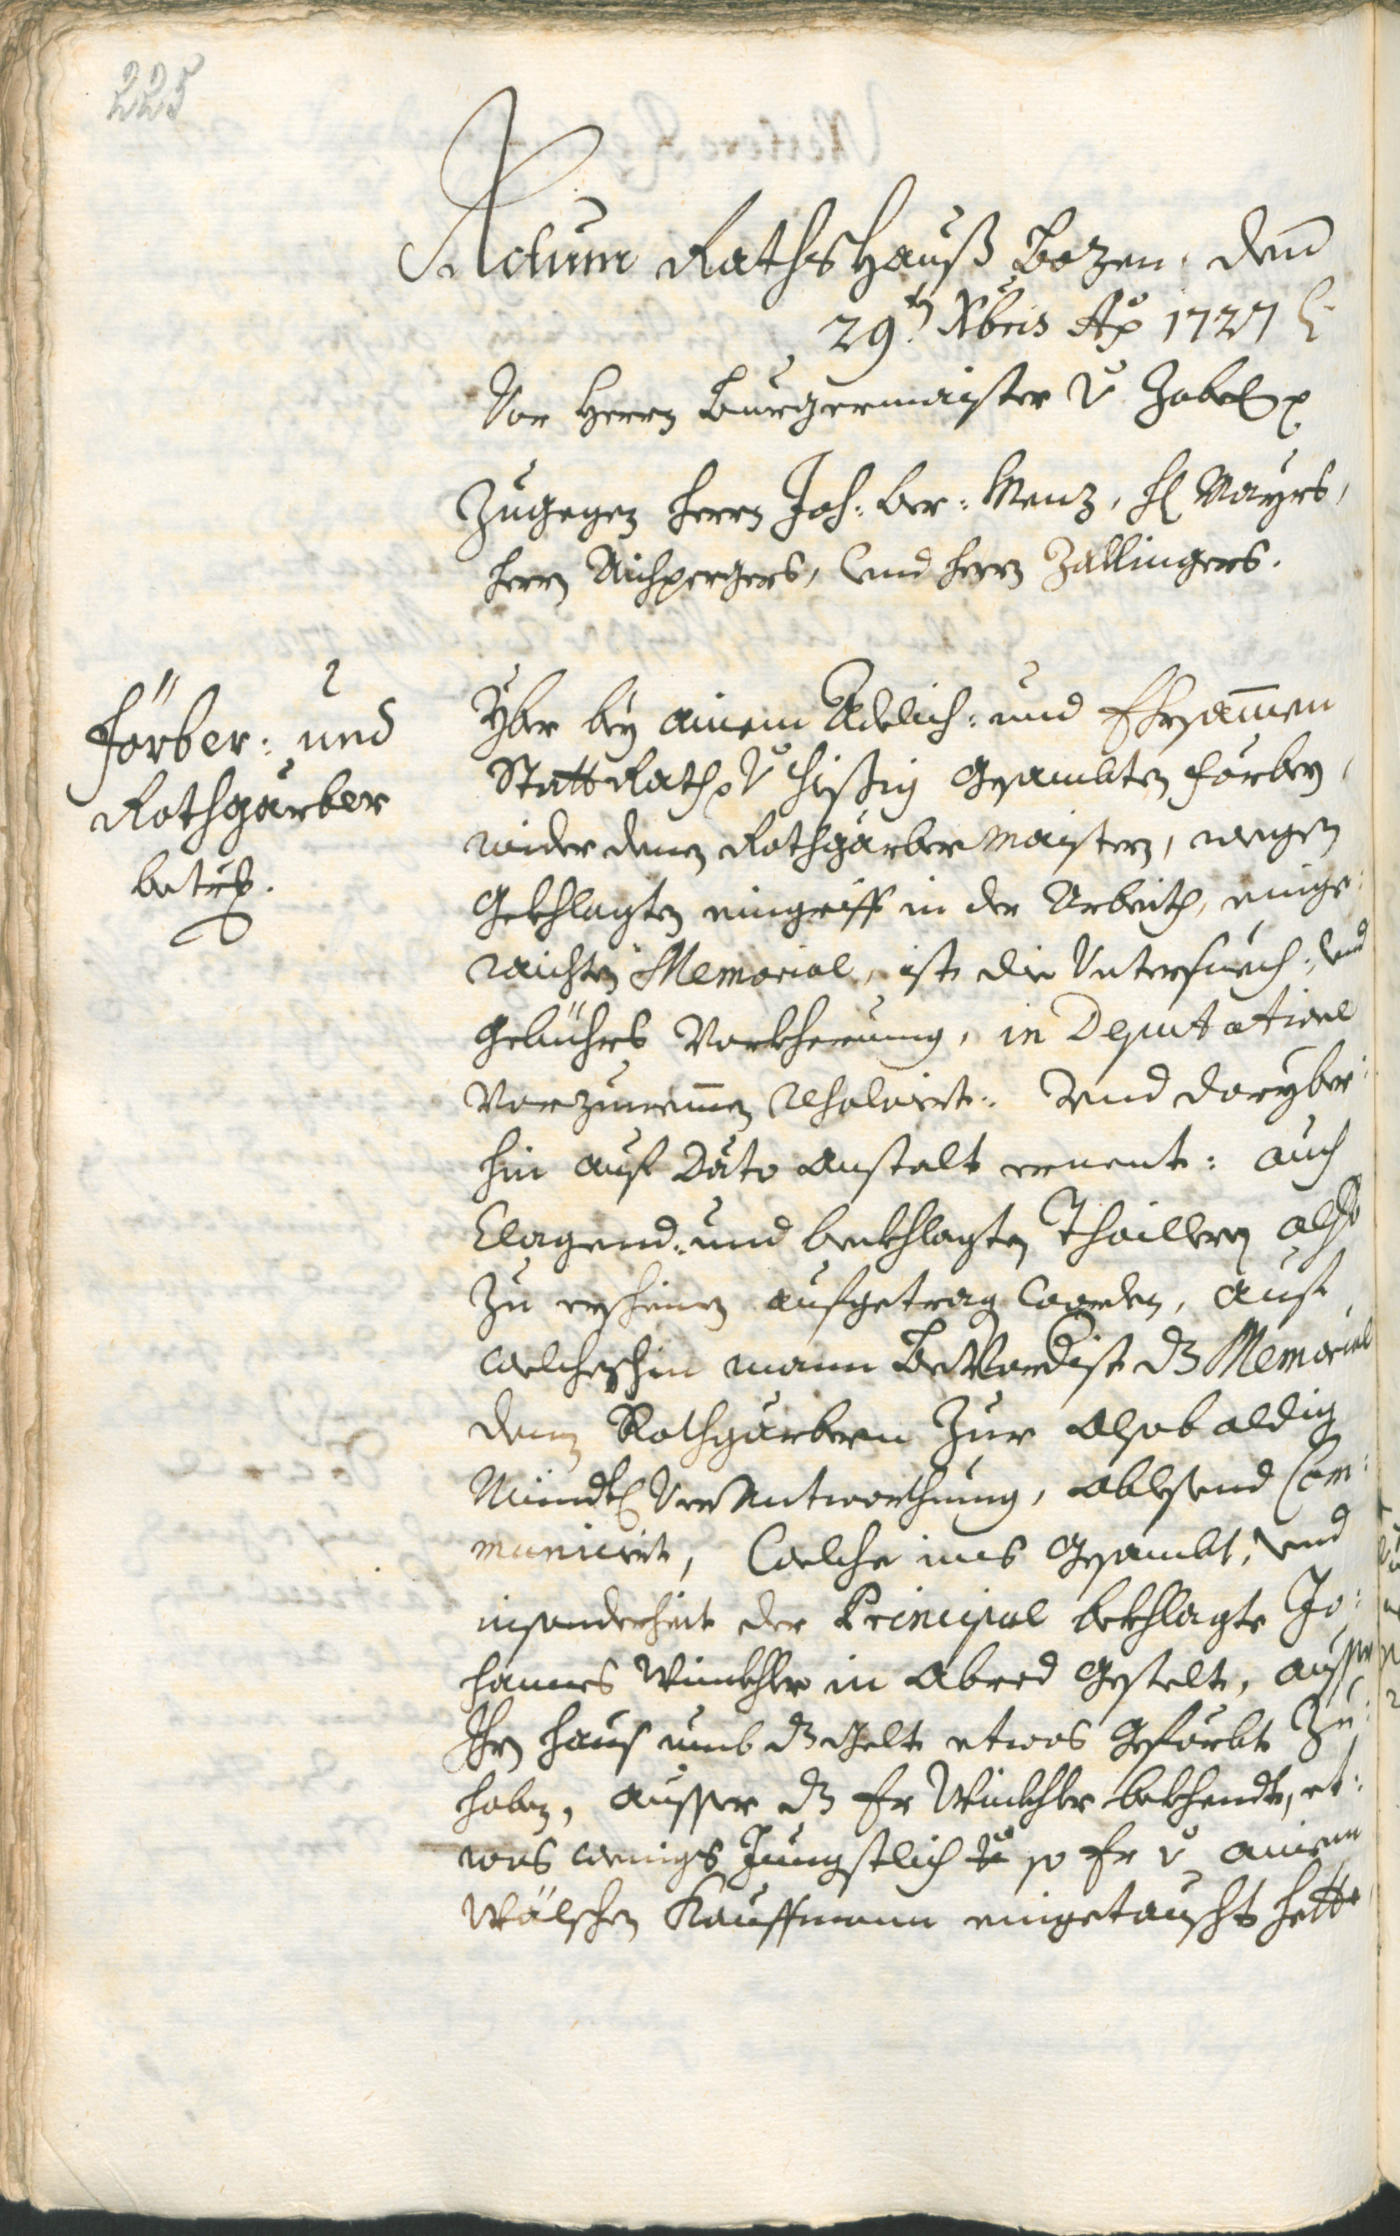 225
Actum RathsHauß Bozen, den
29.t Xbris Ao 1727
Vor Herrn Burgermaister v Zobl p
Zugegen herrn Joh: Ber: Menz, H Mayrs,
herrn Aichpergers, vnd herrn Zallingers.
Förber: und
Rothgärber
betrf.
Yber bey ainem Adelich: und Ehrsammen
StattRath v hießig Gesambten Förbern,
wider denen Rothgärber Maistern, wegen
Gekhlagten eingriff in der Arbeith, einge:
raichten Memorial, ist die Untersuech: vnd
Gebührs Vorkherung, in Deputatione
Vorzunemmen resolviert: Vnd daryber:
hin auf Dato anstalt ernent: auch
Clagend: und beclhagten Thaillen also
zu erscheinen aufgetrag worden, Auf
welcheshin mann dz Memorial
denen Rothgärbern Zur alsobaldig
Mündtl Verantworthung, ablesend Com:
municirt, Welche ins Gesambt, vnd
insonderheit der Principal bekhlagte Jo:
hannes Winckhler in Abred Gestelt, ausser
Ihr hauß umb dz Gelt etwas Geförbt Zu:
haben, ausser dz Er Winckhler bekhendt, et:
was weniges Jüngstlich so Er v ainem
Wälschen Kauffmann eingetauscht hette